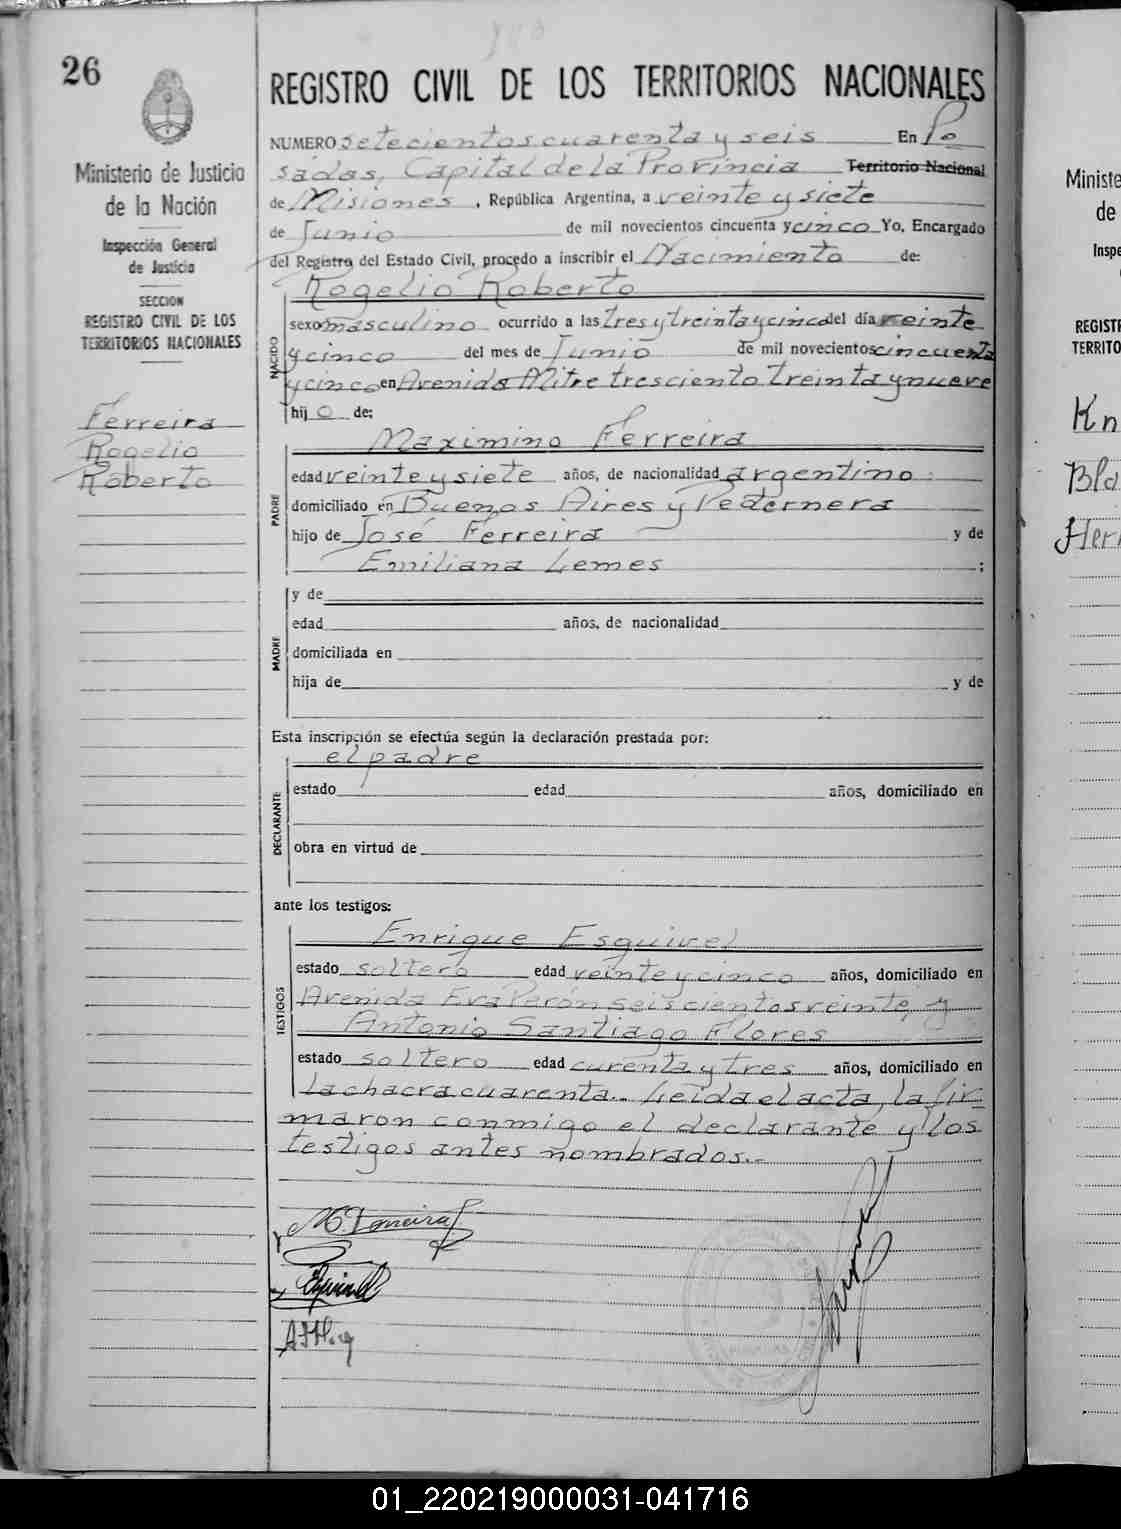 26
Ministerio de Justicia
de la Nación
Inspección General
de Justicia
SECCION
REGISTRO CIVIL DE LOS
TERRITORIOS NACIONALES
Ferreira
Rogelio
Roberto
REGISTRO CIVIL DE LOS TERRITORIOS NACIONALES
NUMERO setecientos cuarenta y seis En Po
sadas, Capital de la Provincia Territorio Nacional
de Misiones, República Argentina, a veinte y siete
de Junio de mil novecientos cincuenta y cinco Yo, Encargado
del Registro del Estado Civil, procedo a inscribir el Nacimiento de:
Rogelio Roberto
NACIDO
sexo masculino ocurrido a las tres y treinta y cinco del día veinte
y cinco del mes de Junio de mil novecientos cincuenta
y cinco en Avenida Mitre tresciento treinta y nueve
hij o de:
Maximino Ferreira
PADRE
edad veinte y siete años, de nacionalidad argentino
domiciliado en Buenos Aires y Pedernera
hijo de José Ferreira y de
Emiliana Lemes ;
MADRE
y de
edad años, de nacionalidad
domiciliada en
hija de y de
Esta inscripción se efectúa según la declaración prestada por:
el padre
DECLARANTE
estado edad años, domiciliado en
obra en virtud de
ante los testigos:
Enrique Esquivel
TESTIGOS
estado soltero edad veinte y cinco años, domiciliado en
Avenida Eva Perón seiscientos veinte, y
Antonio Santiago Flores
estado soltero edad curenta y tres años, domiciliado en
la chacra cuarenta.. Leída el acta, la fir-
maron conmigo el declarante y los
testigos antes nombrados..-
Ministe
de
Inspe
REGISTR
TERRITO
Kn
Bla
Heri
01_220219000031-041716